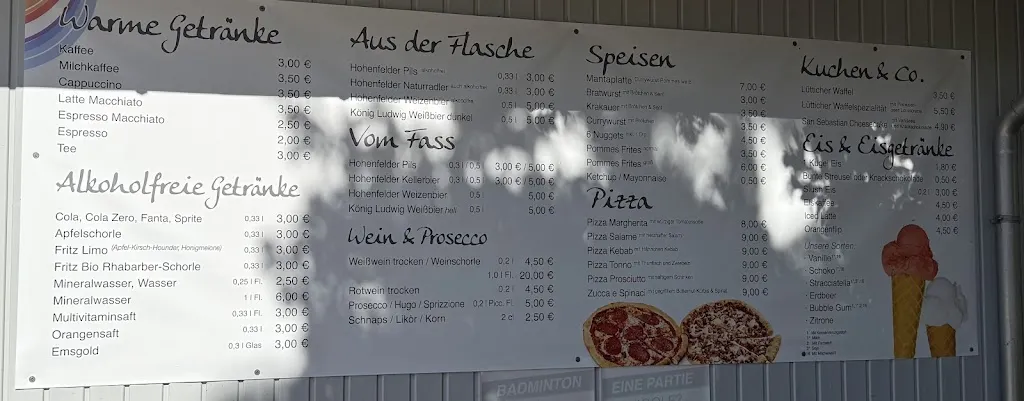 Warme Getränke
Kaffee 3,00 €
Milchkaffee 3,50 €
Cappuccino 3,50 €
Latte Macchiato 3,50 €
Espresso Macchiato 2,50 €
Espresso 2,00 €
Tee 3,00 €
Alkoholfreie Getränke
Cola, Cola Zero, Fanta, Sprite 0,33 l 3,00 €
Apfelschorle 0,33 l 3,00 €
Fritz Limo (Apfel-Kirsch-Holunder, Honigmelone) 0,33 l 3,00 €
Fritz Bio Rhabarber-Schorle 0,33 l 3,00 €
Mineralwasser, Wasser 0,25 l Fl. 2,50 €
Mineralwasser 1 l Fl. 6,00 €
Multivitaminsaft 0,33 l Fl. 3,00 €
Orangensaft 0,33 l 3,00 €
Emsgold 0,3 l Glas 3,00 €
Aus der Flasche
Hohenfelder Pils alkoholfrei 0,33 l 3,00 €
Hohenfelder Naturradler auch alkoholfrei 0,33 l 3,00 €
Hohenfelder Weizenbier alkoholfrei 0,5 l 5,00 €
König Ludwig Weißbier dunkel 0,5 l 5,00 €
Vom Fass
Hohenfelder Pils 0,3 l / 0,5 l 3,00 € / 5,00 €
Hohenfelder Kellerbier 0,3 l / 0,5 l 3,00 € / 5,00 €
Hohenfelder Weizenbier 0,5 l 5,00 €
König Ludwig Weißbier hell 0,5 l 5,00 €
Wein & Prosecco
Weißwein trocken / Weinschorle 0,2 l 4,50 €
1,0 l Fl. 20,00 €
Rotwein trocken 0,2 l 4,50 €
Prosecco / Hugo / Sprizzione 0,2 l Picc. Fl. 5,00 €
Schnaps / Likör / Korn 2 cl 2,50 €
Speisen
Mantaplatte 7,00 €
Bratwurst 3,00 €
Krakauer 3,50 €
Currywurst 3,50 €
6 Nuggets 4,50 €
Pommes Frites 3,50 €
Pommes Frites 6,00 €
Ketchup / Mayonnaise 0,50 €
Pizza
Pizza Margherita 8,00 €
Pizza Salame 9,00 €
Pizza Kebab 9,00 €
Pizza Tonno 9,00 €
Pizza Prosciutto 9,00 €
Zucca e Spinaci 9,00 €
Kuchen & Co.
Lütticher Waffel 3,50 €
Lütticher Waffelspezialität 5,50 €
San Sebastian Cheesecake 4,90 €
Eis & Eisgetränke
1 Kugel Eis 1,80 €
Bunte Streusel oder Knackschokolade 0,50 €
Slush Eis 0,2 l 3,00 €
Eiskaffee 4,50 €
Iced Latte 4,00 €
Orangenflip 4,50 €
Unsere Sorten:
- Vanille
- Schoko
- Stracciatella
- Erdbeer
- Bubble Gum
- Zitrone
BADMINTON
EINE PARTIE